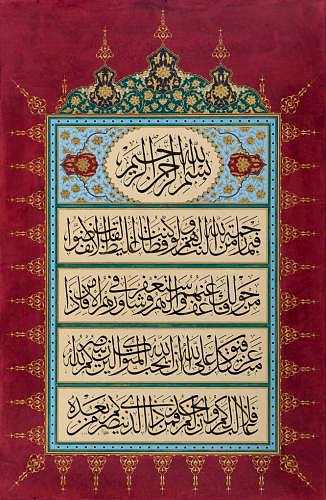 بسم الله الرحمن الرحيم
فبما رحمة من الله لنت لهم ولو كنت فظا غليظ القلب لانفضوا
من حولك فاعف عنهم واستغفر لهم وشاورهم في الامر فاذا
عزمت فتوكل على الله ان الله يحب المتوكلين ان ينصركم الله
فلا غالب لكم وان يخذلكم فمن ذا الذي ينصركم من بعده